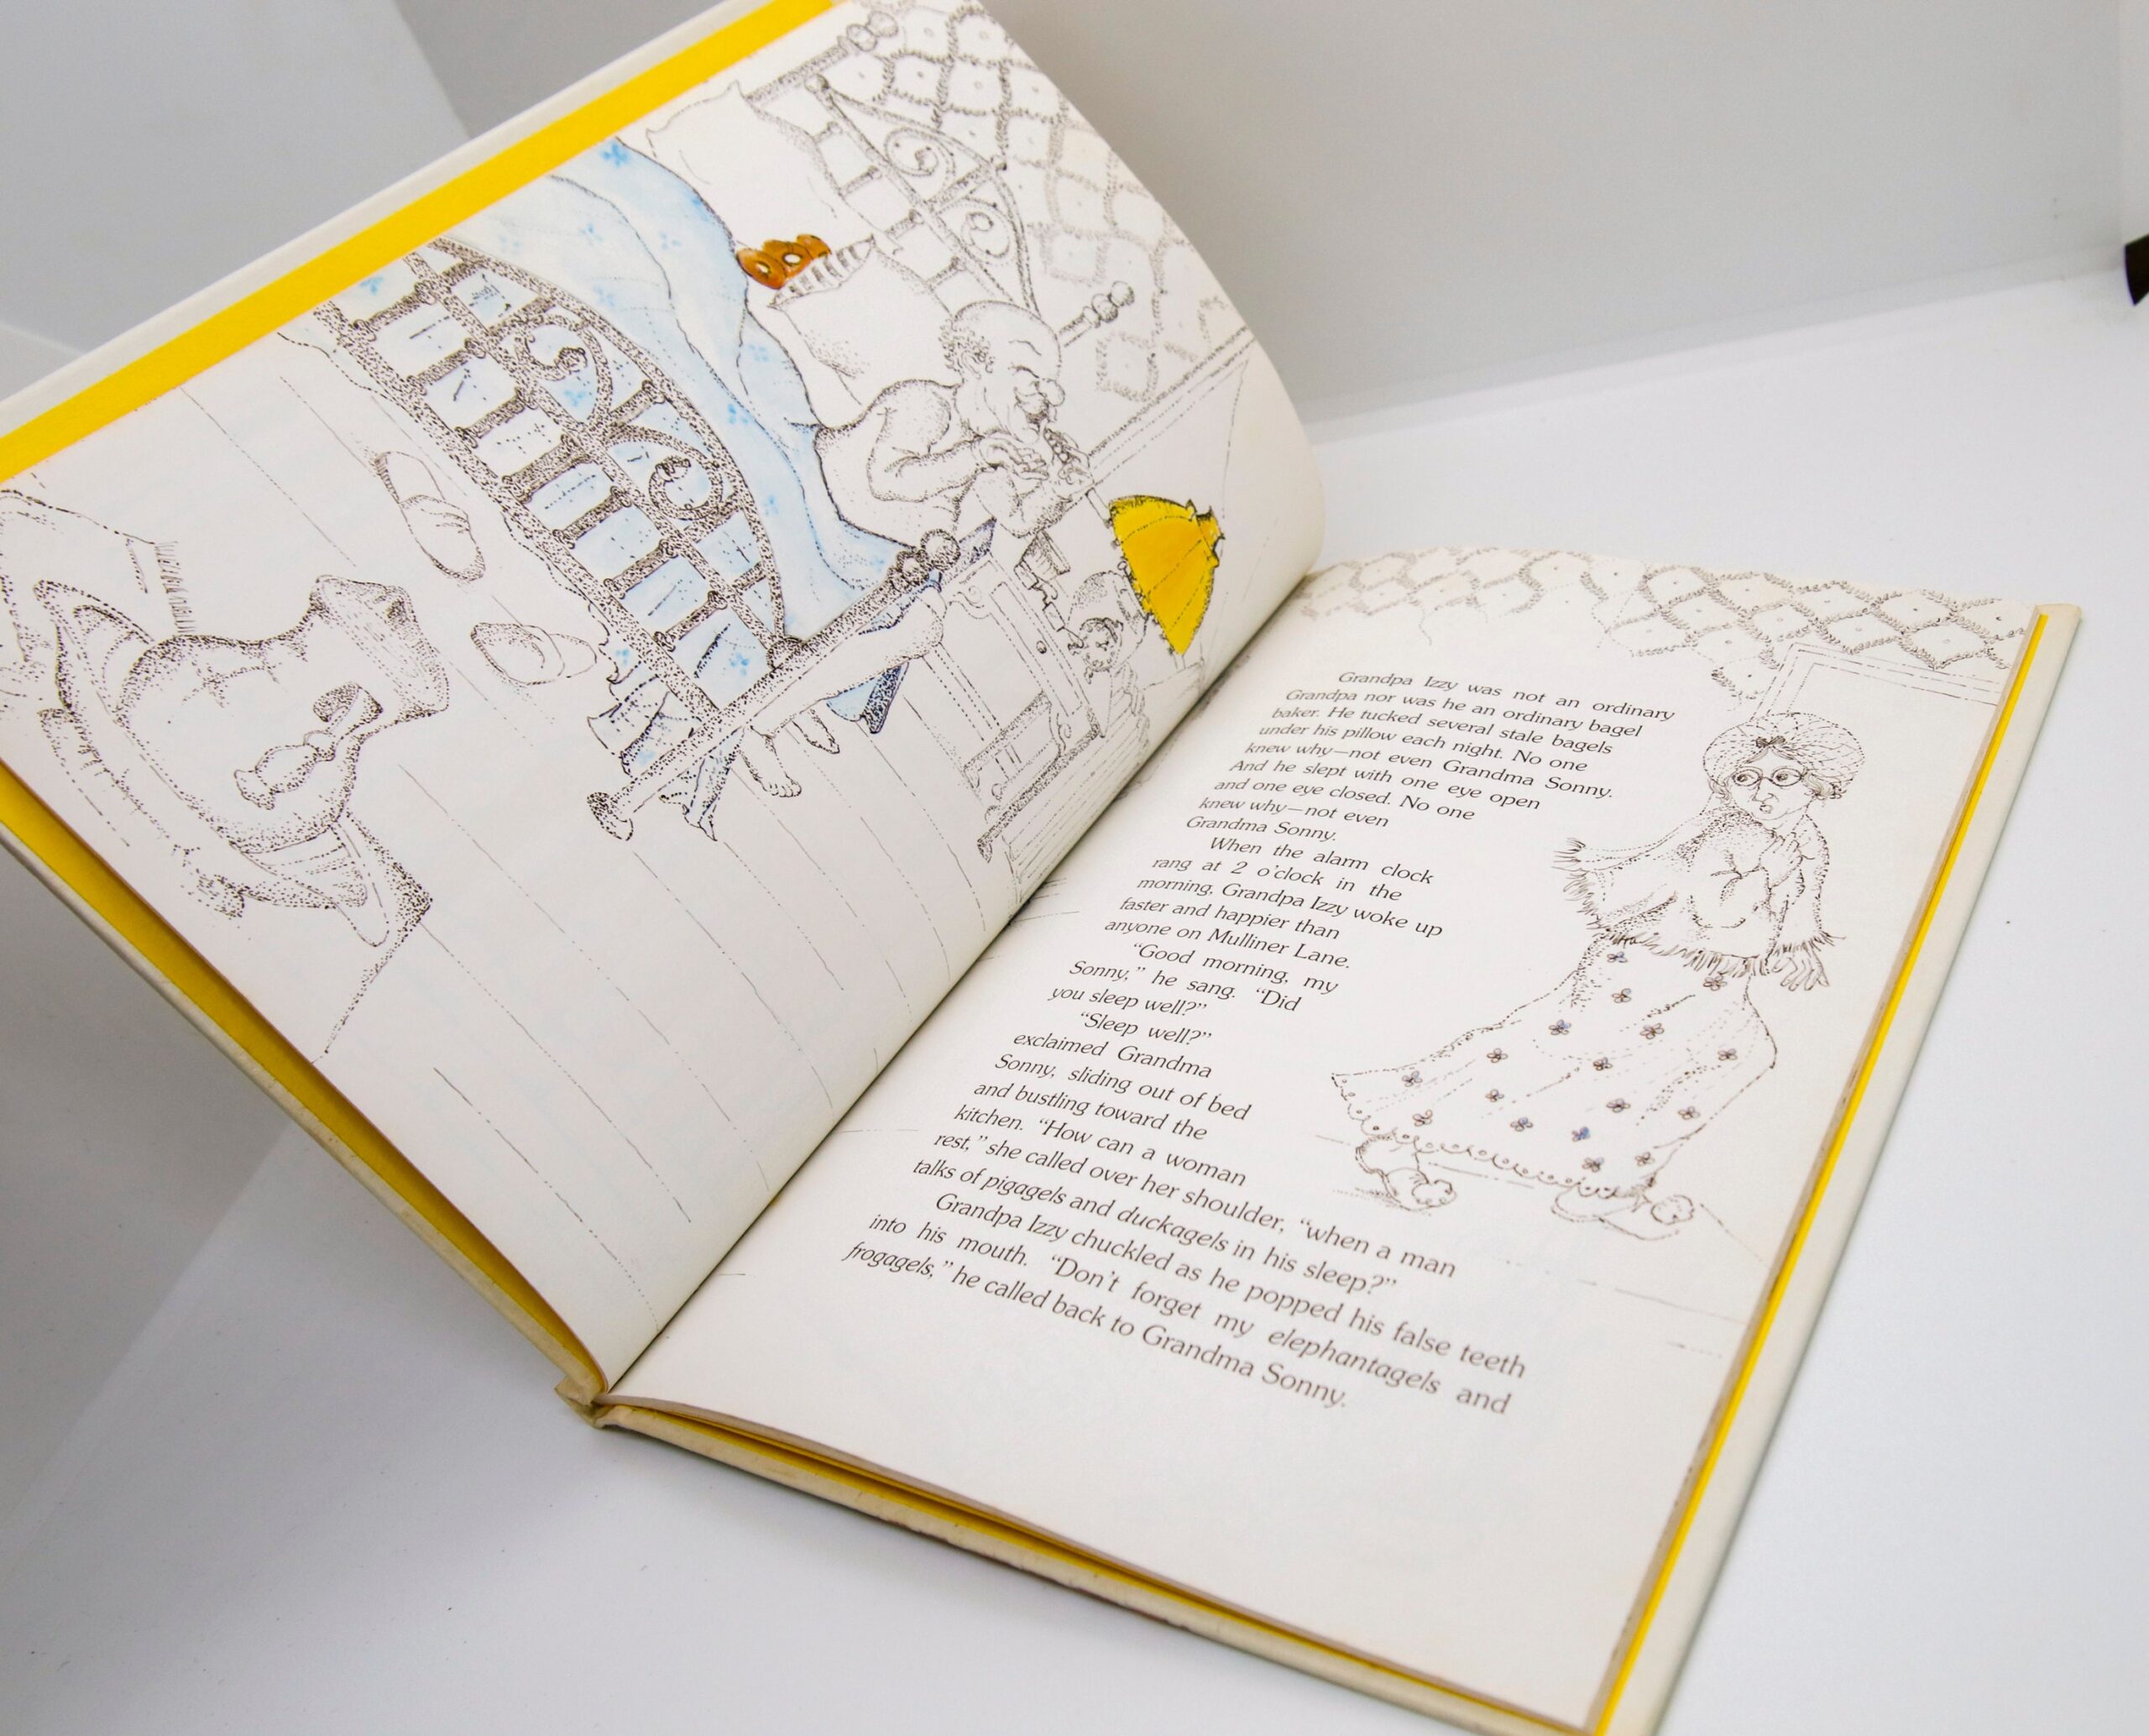 Grandpa Izzy was not an ordinary
Grandpa nor was he an ordinary bagel
baker. He tucked several stale bagels
under his pillow each night. No one
knew why—not even Grandma Sonny.
And he slept with one eye open
and one eye closed. No one
knew why—not even
Grandma Sonny.
When the alarm clock
rang at 2 o'clock in the
morning, Grandpa Izzy woke up
faster and happier than
anyone on Mulliner Lane.
“Good morning, my
Sonny,” he sang. “Did
you sleep well?”
“Sleep well?”
exclaimed Grandma
Sonny, sliding out of bed
and bustling toward the
kitchen. “How can a woman
rest,” she called over her shoulder, “when a man
talks of pigagels and duckagels in his sleep?”
Grandpa Izzy chuckled as he popped his false teeth
into his mouth. “Don't forget my elephantagels and
frogagels,” he called back to Grandma Sonny.